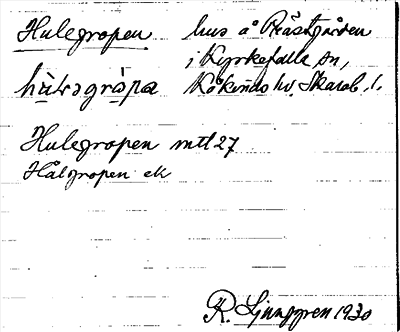 Hulegropen hus å Prästgården
i Kyrkefalla sn,
Kåkinds hd. Skarab. l.
Hulegropen mtl 27
Hålgropen ek
R. Ljunggren 1930